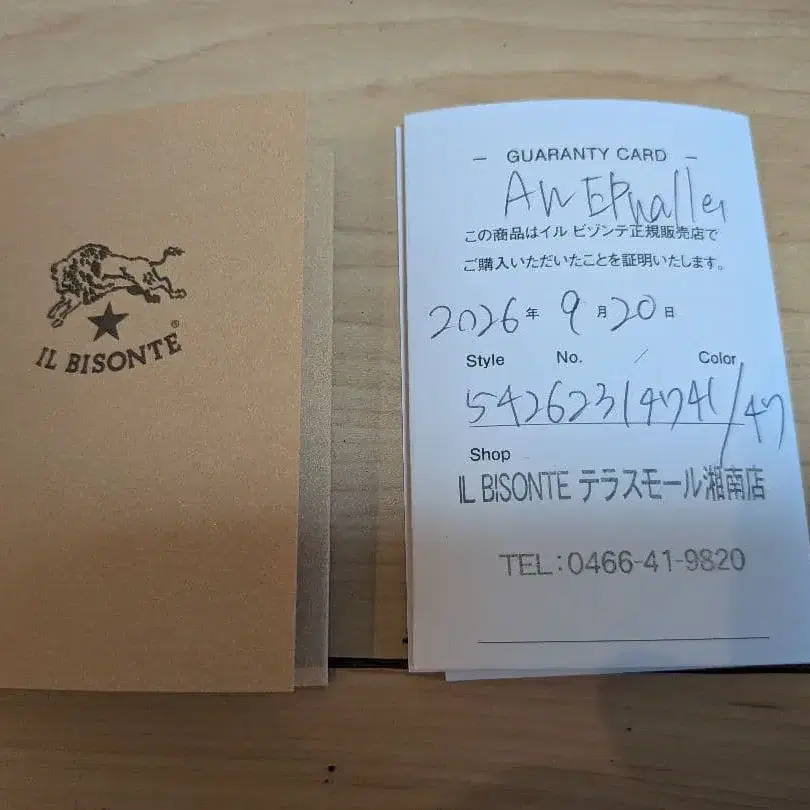 IL BISONTE®
— GUARANTY CARD —
AW
この商品はイル ビゾンテ正規販売店で
ご購入いただいたことを証明いたします。
2026年 9月20日
Style No. / Color
54262314741/47
Shop
IL BISONTE テラスモール湘南店
TEL:0466-41-9820